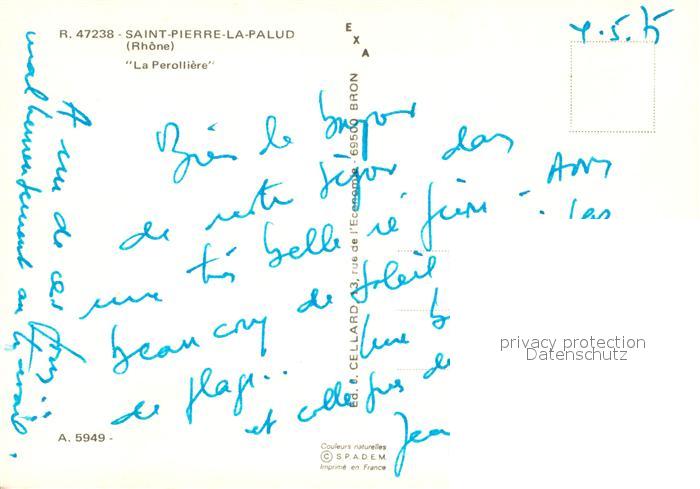 R. 47238 - SAINT-PIERRE-LA-PALUD
(Rhône)
"La Perollière"
EXA
4.5.75
Bien le bonjour
de notre séjour dans
une très belle région
beaucoup de soleil
de plage..
et collègues de
Jea
A un de ces
malheureusement au travail.
Ed. E. CELLARD, rue de l'Economie - 69500 BRON
privacy protection
Datenschutz
A. 5949 -
Couleurs naturelles
© S.P.A.D.E.M.
Imprimé en France